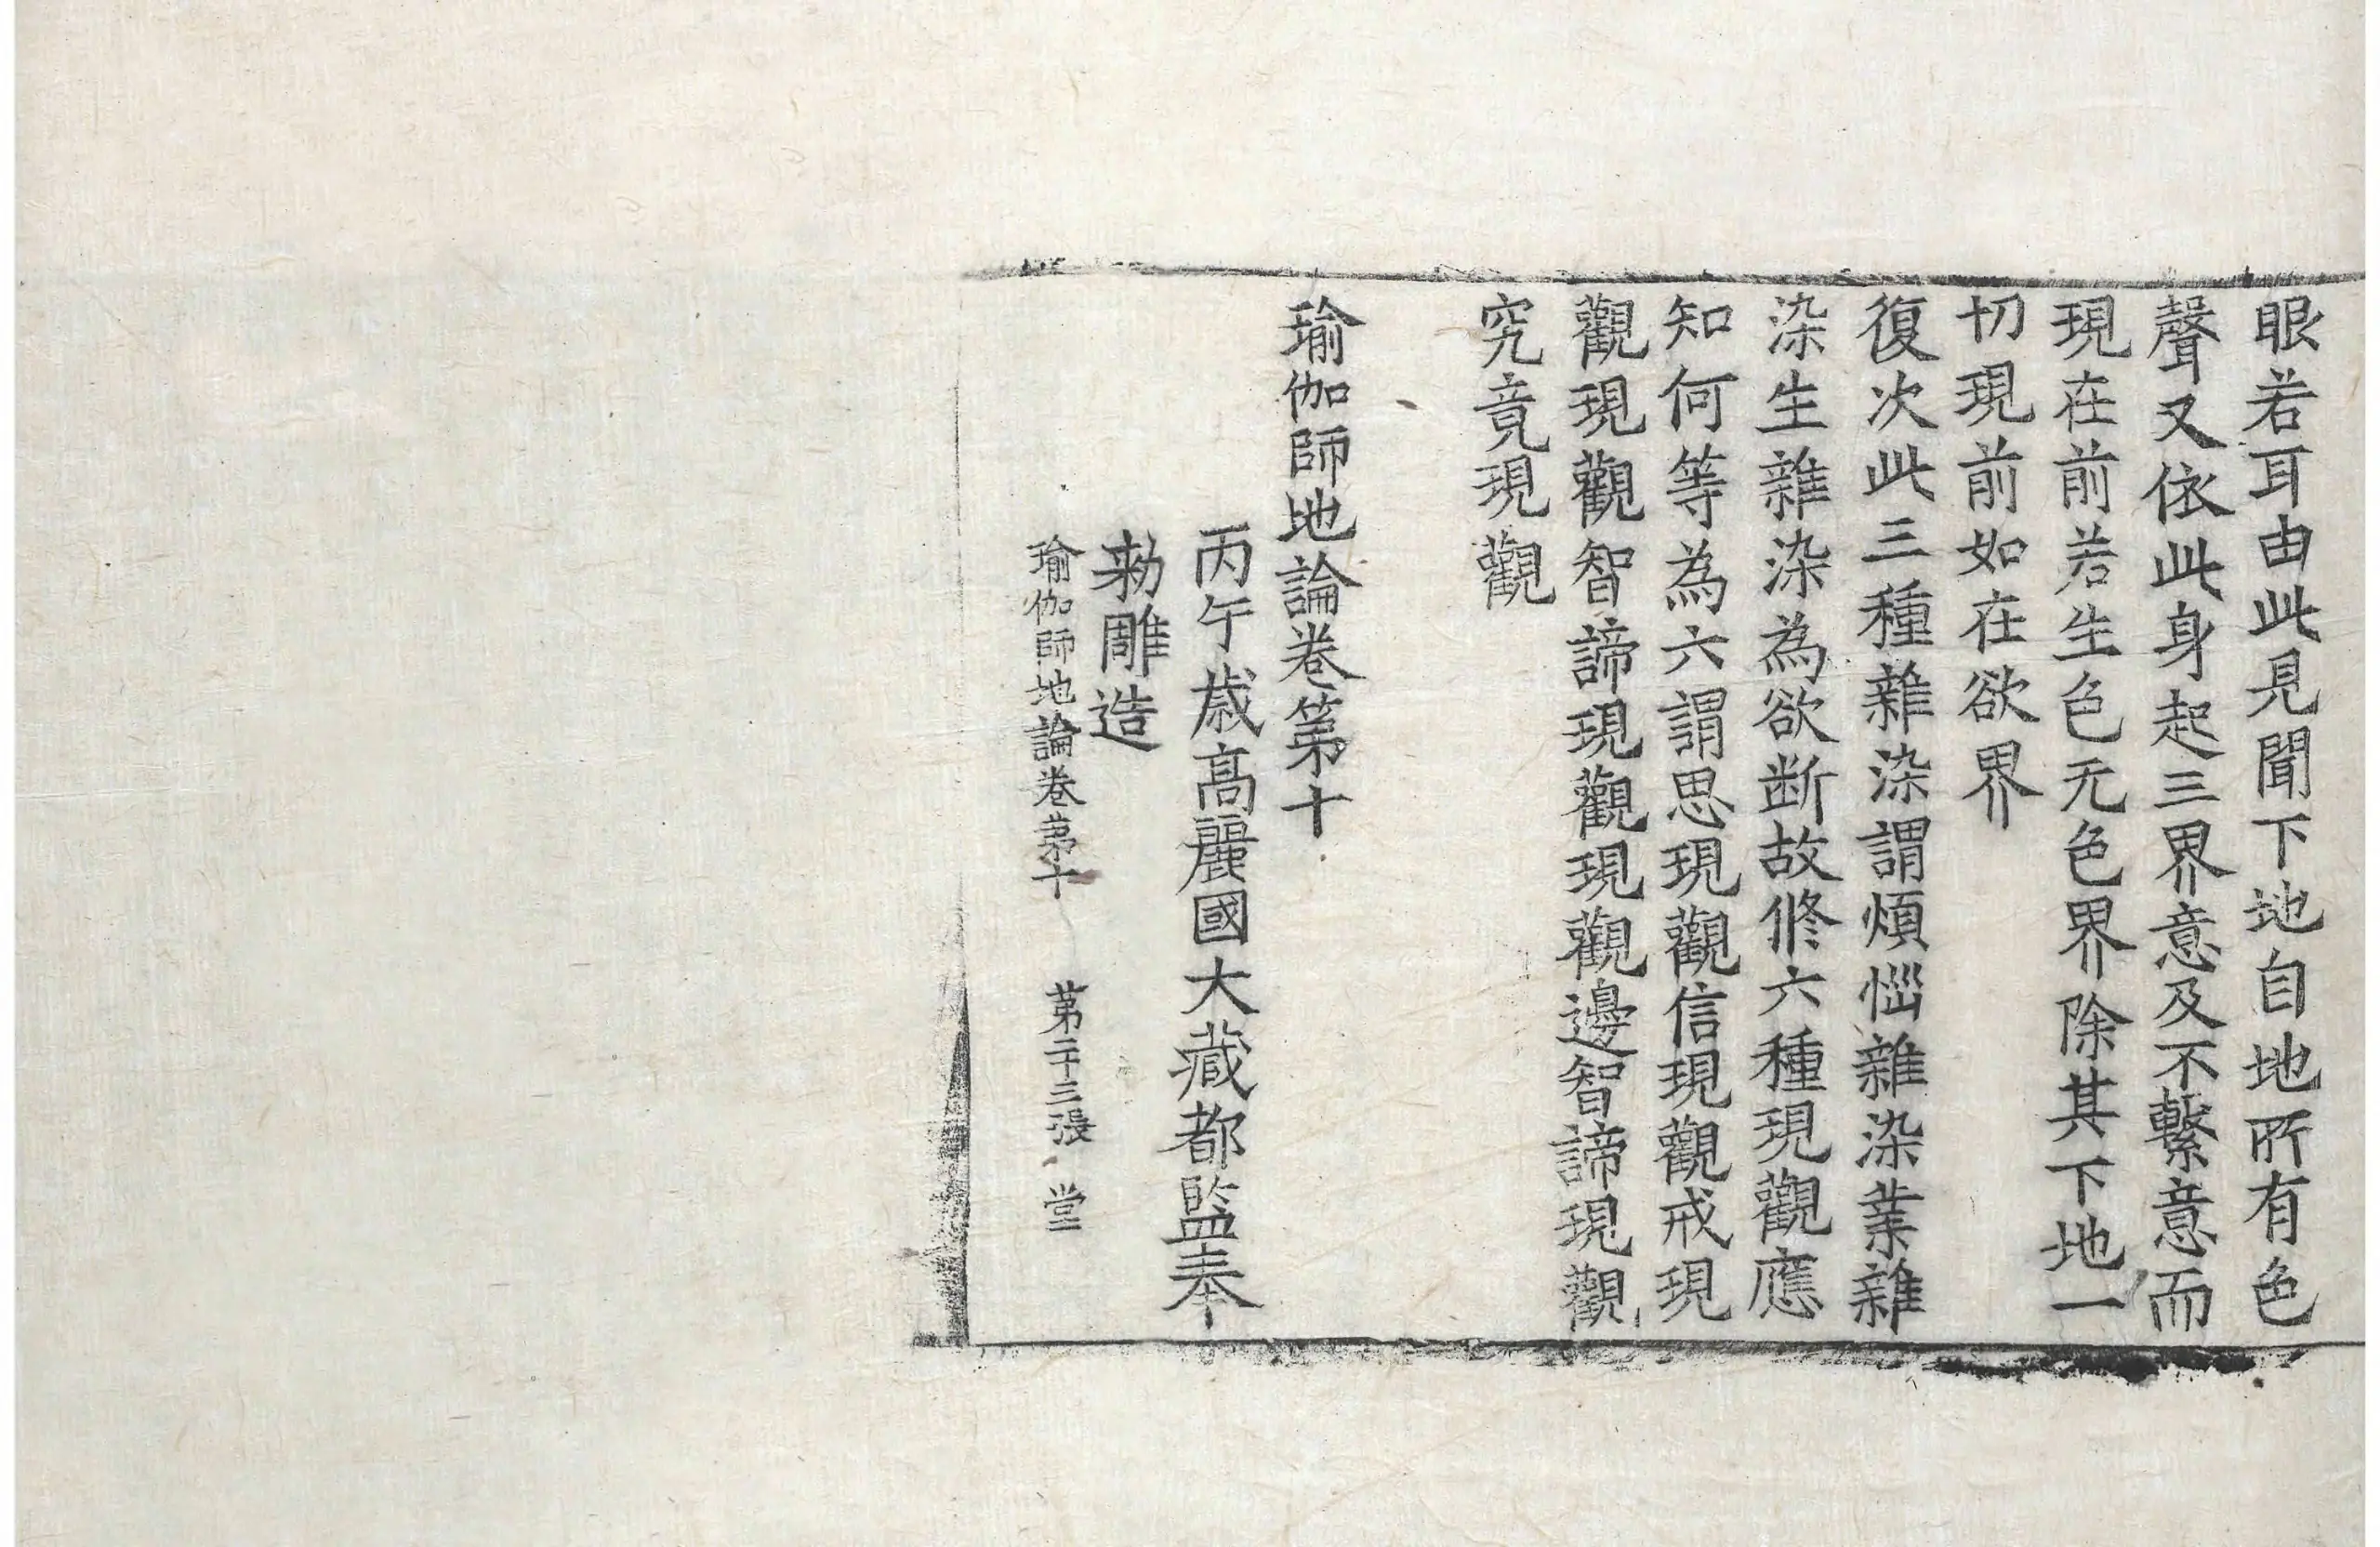 眼若耳由此見聞下地自地所有色
聲又依此身起三界意及不繫意而
現在前若生色无色界除其下地一
切現前如在欲界
復次此三種雜染謂煩惱雜染業雜
染生雜染為欲断故修六種現觀應
知何等為六謂思現觀信現觀戒現
觀現觀智諦現觀現觀邊智諦現觀
究竟現觀
瑜伽師地論卷第十
丙午歳高麗國大藏都監奉
勑雕造
瑜伽師地論卷苐十 苐二十三張 堂